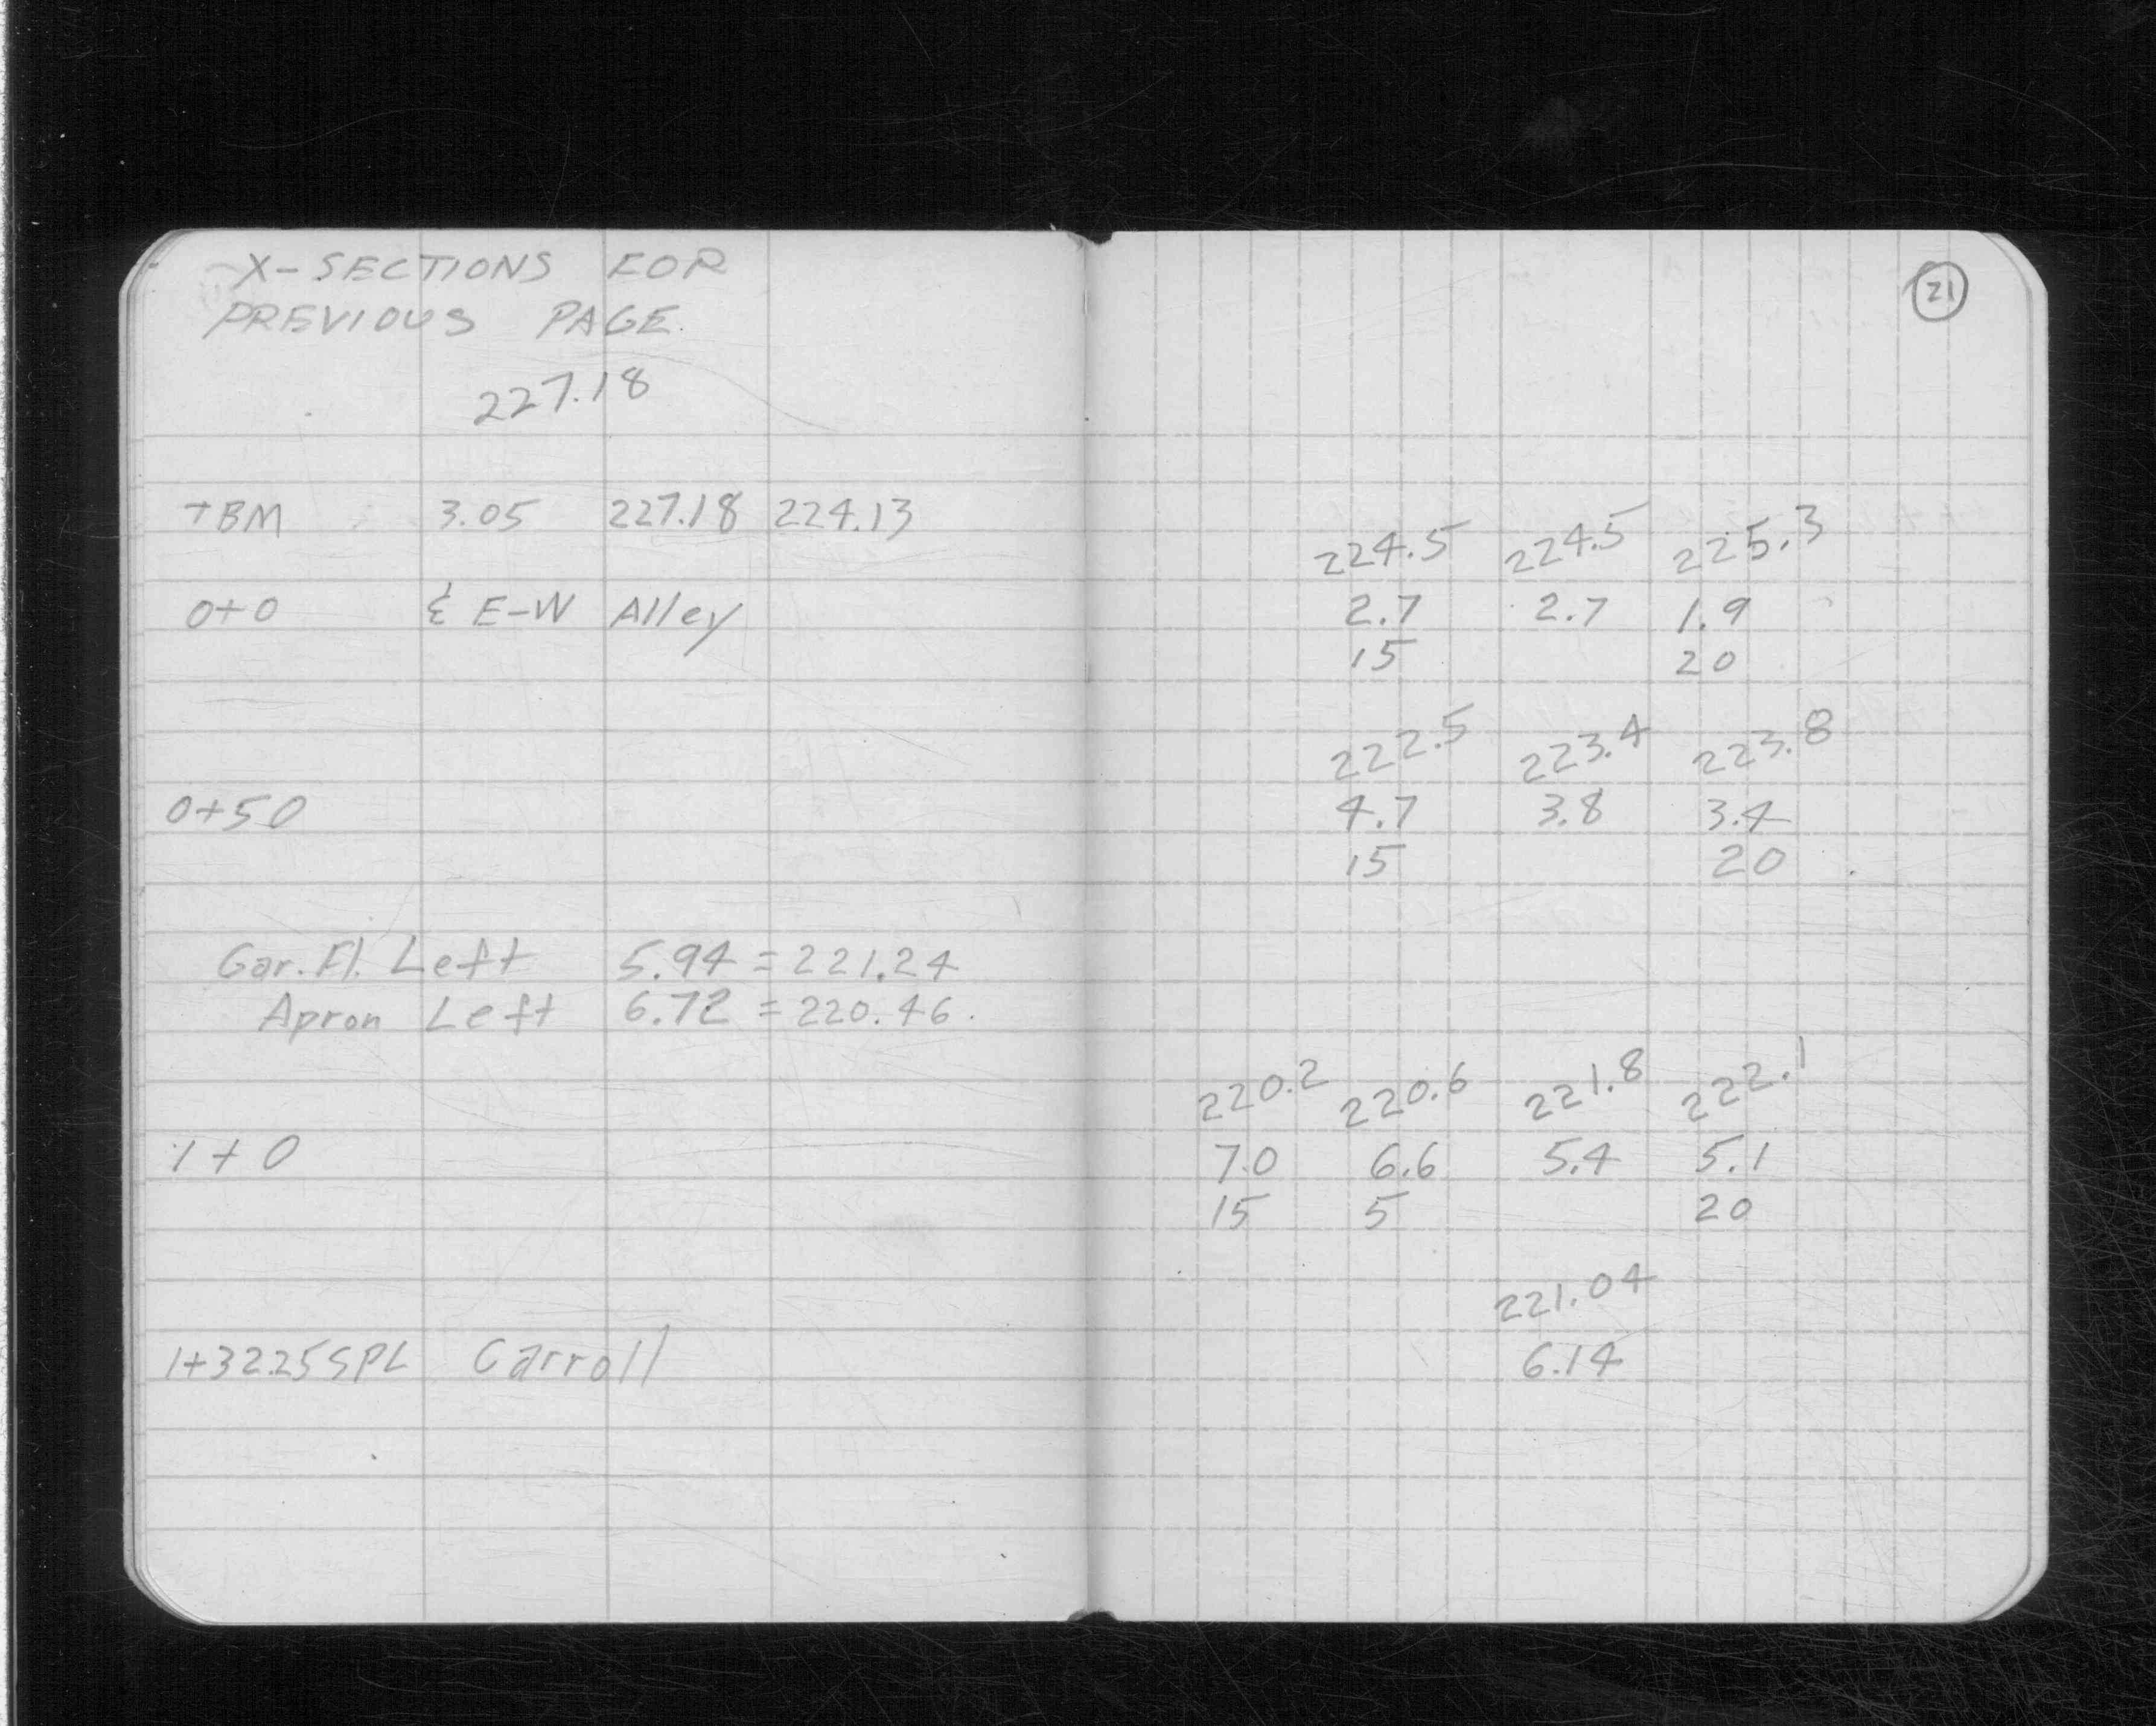 X-SECTIONS FOR
PREVIOUS PAGE.
227.18
TBM 3.05 227.18 224.13
0+0 ℄ E-W Alley
0+50
Gar. Fl. Left 5.94 = 221.24
Apron Left 6.72 = 220.46.
1+0
1+32.25 SPL Carroll
21
224.5 224.5 225.3
2.7 2.7 1.9
15 20
222.5 223.4 223.8
4.7 3.8 3.4
15 20
220.2 220.6 221.8 222.1
7.0 6.6 5.4 5.1
15 5 20
221.04
6.14